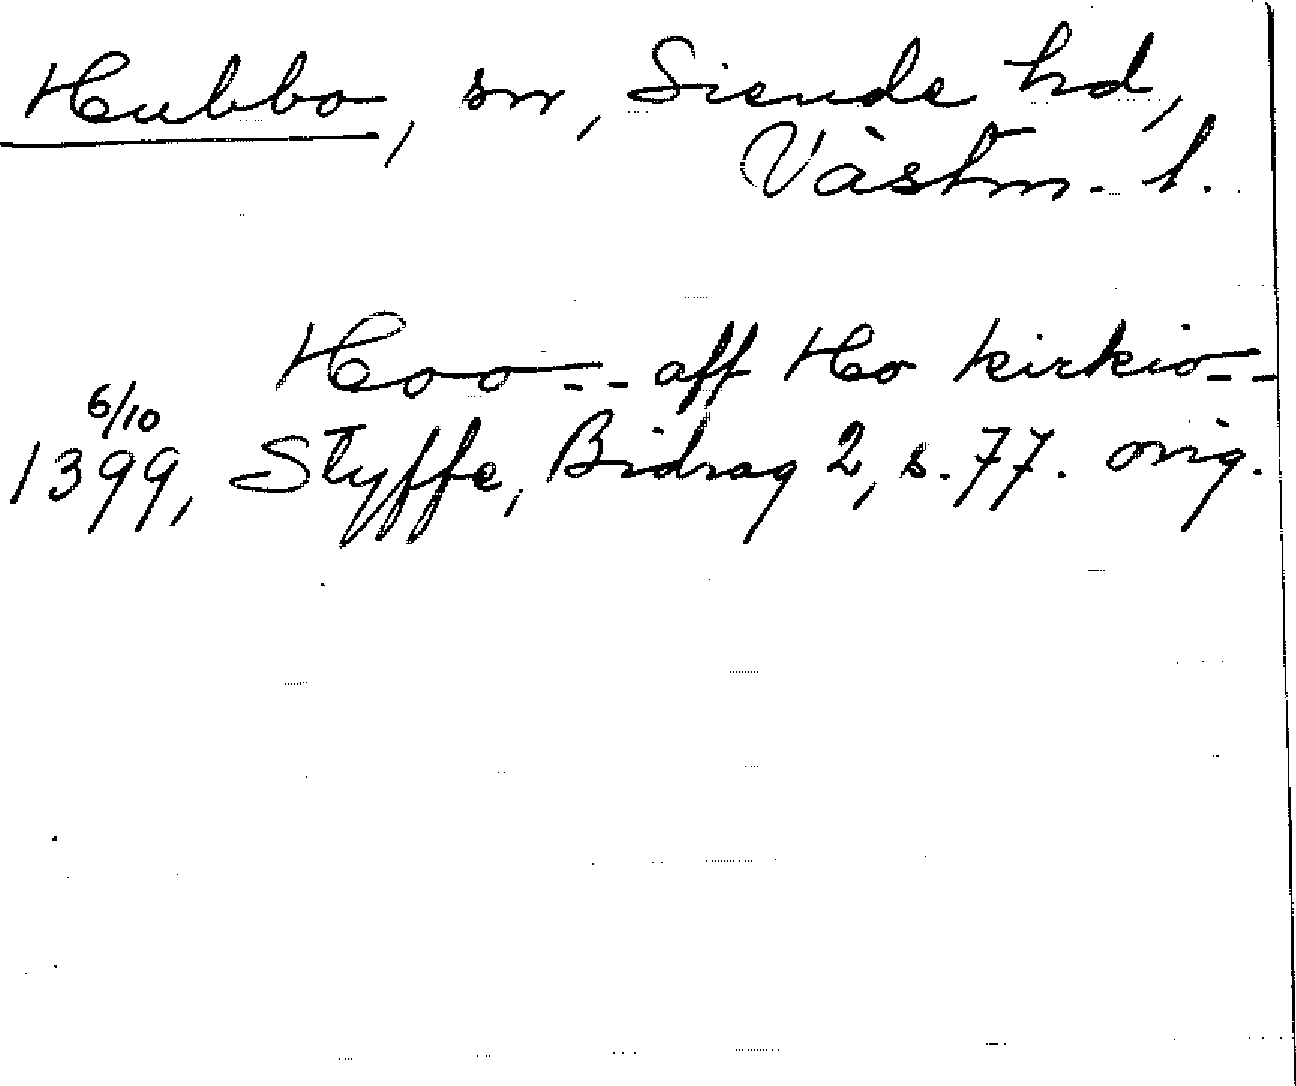 Hubbo, sn, Siende hd,
Västm. l.
Hoo -- aff Ho kirkio --
6/10
1399, Styffe, Bidrag 2, s. 77. orig.